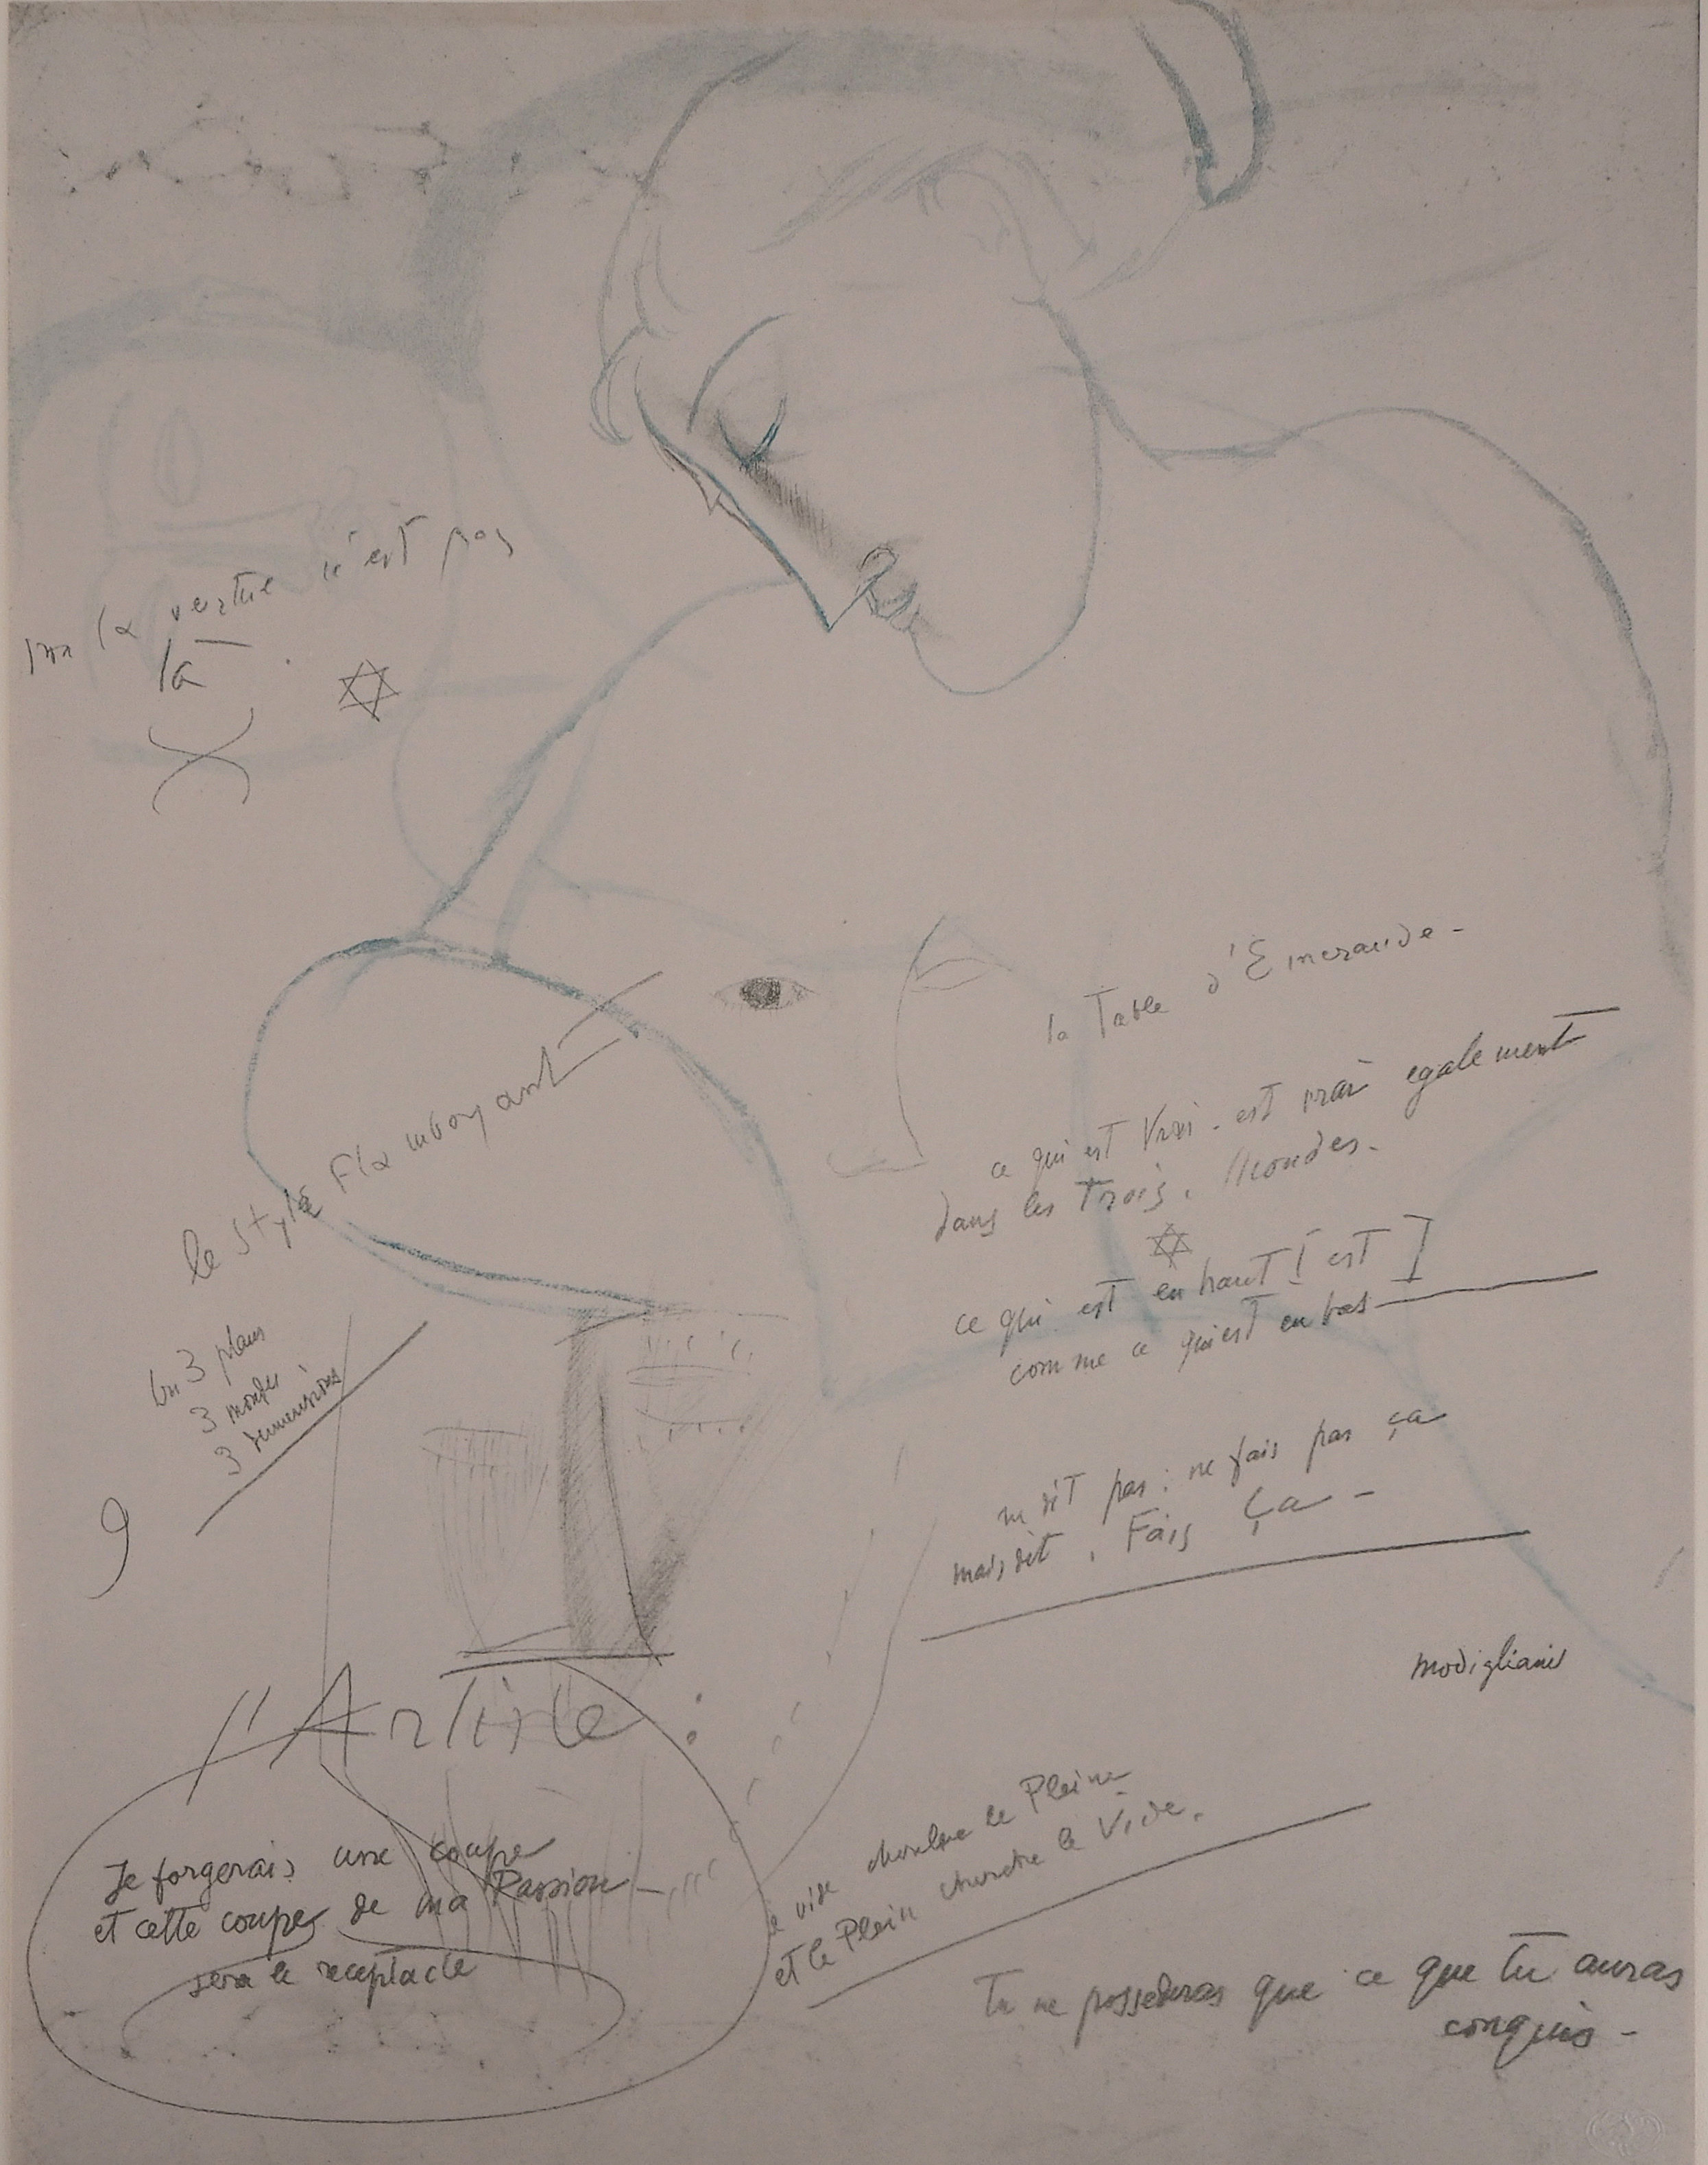 la vertue n'est pas
là
la Table d'Emeraude-
ce qui est Vrai. est vrai egalement
dans les Trois. Mondes.
ce qui est en haut est
comme ce qui est en bas
le Style Flamboyant
3 plans
3 mondes
3 dimensions
9
ne dit pas : ne fais pas ça
mais dit. Fais Ça-
modigliani
l'Artiste :
Je forgerais une coupe
et cette coupe de ma Passion-
sera le receptacle
vide cherche le Plein
et le Plein cherche le Vide.
Tu ne possederas que ce que tu auras
conquis-